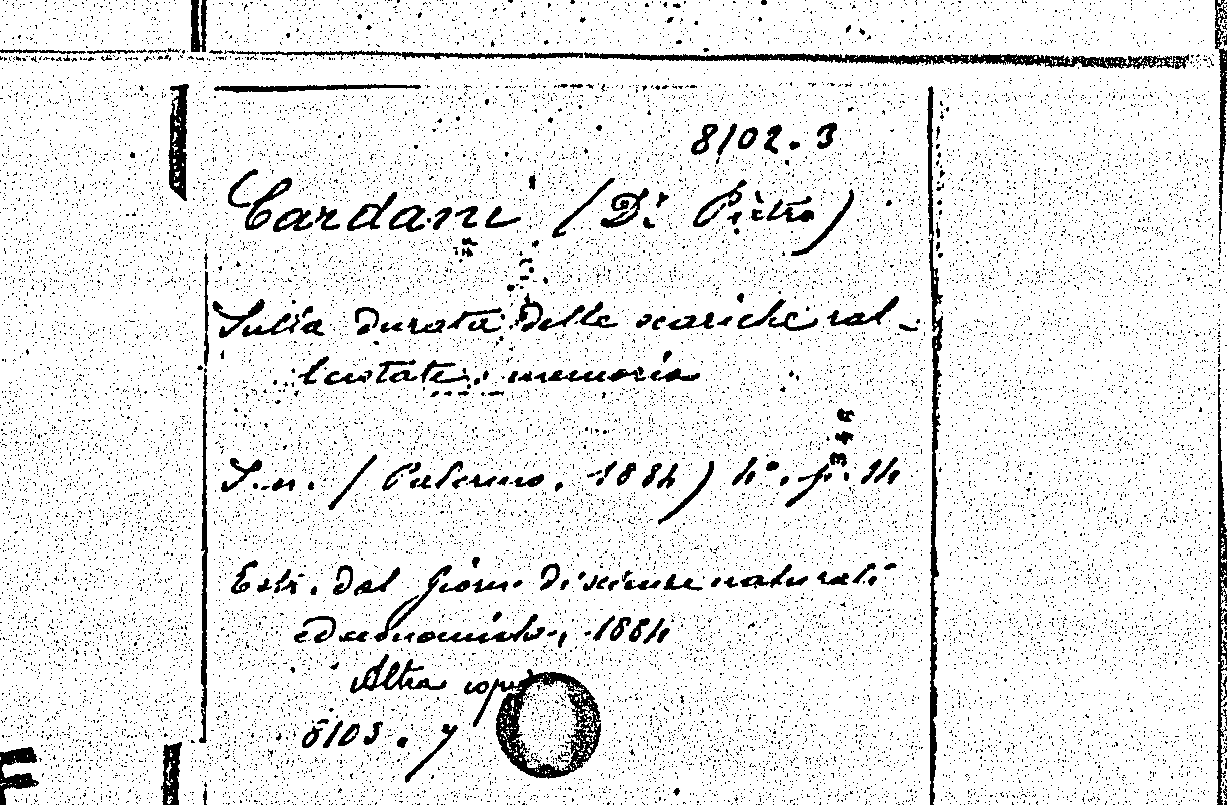 8102.3
Cardani (Dr. Pietro)
Sulla durata delle scariche ral-
lentate. memoria
S.n. (Palermo, 1884) 4°. p. 14
348
Estr. dal Giorn. di scienze naturali
ed economiche, 1884
Altra copia
8103.7
F